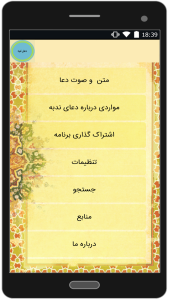 18:39
متن و صوت دعا
مواردی درباره دعای ندبه
اشتراک گذاری برنامه
تنظیمات
جستجو
منابع
درباره ما